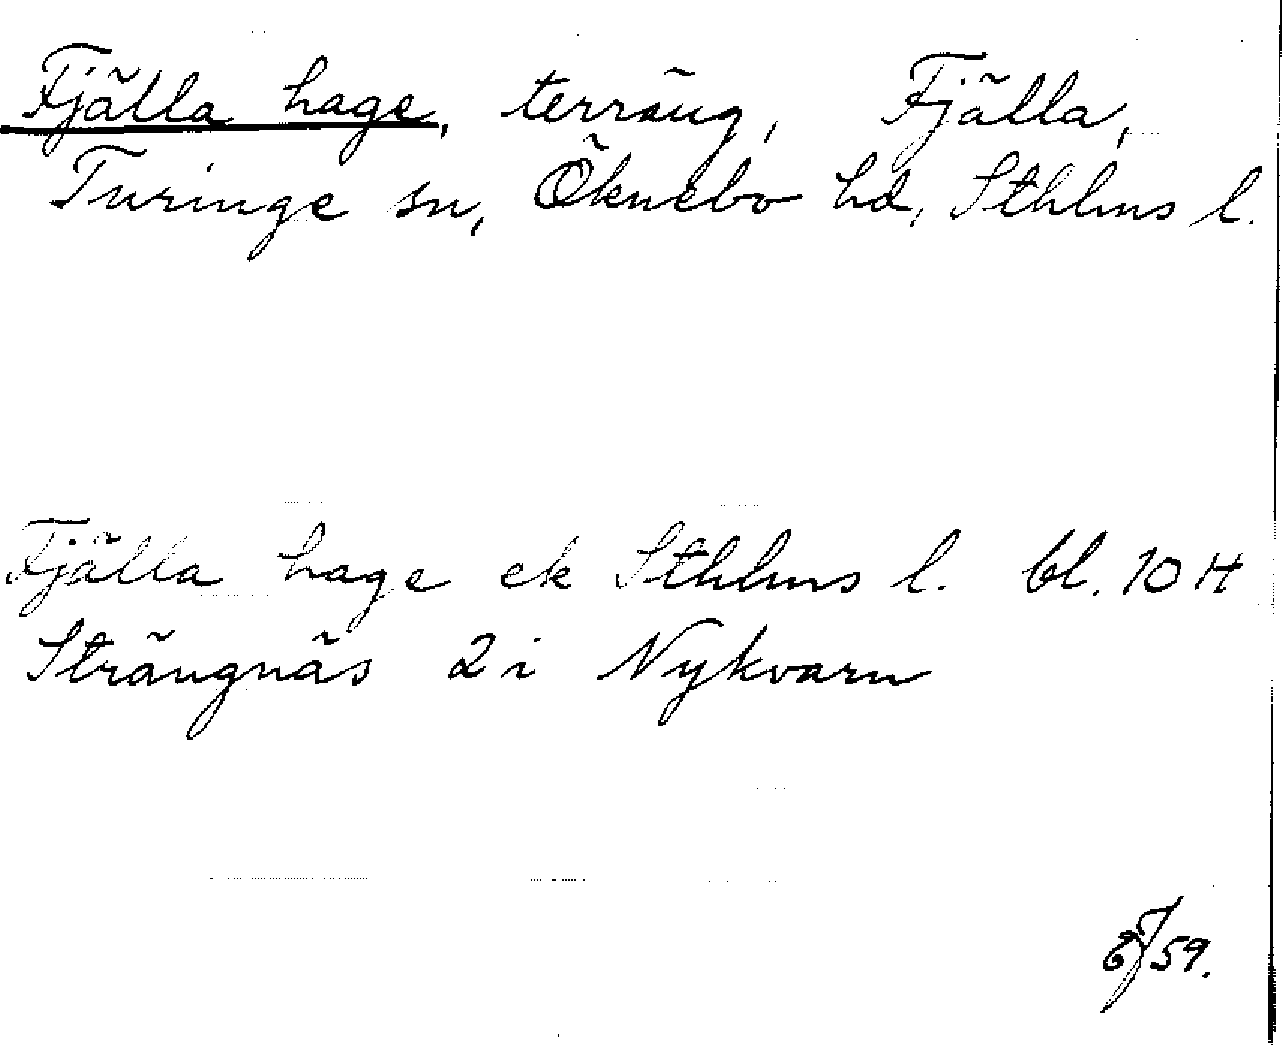 Fjälla hage, terräng, Fjälla,
Turinge sn, Öknebo hd, Sthlms l.
Fjälla hage ek Sthlms l. bl. 10 H
Strängnäs 2 i Nykvarn
59.